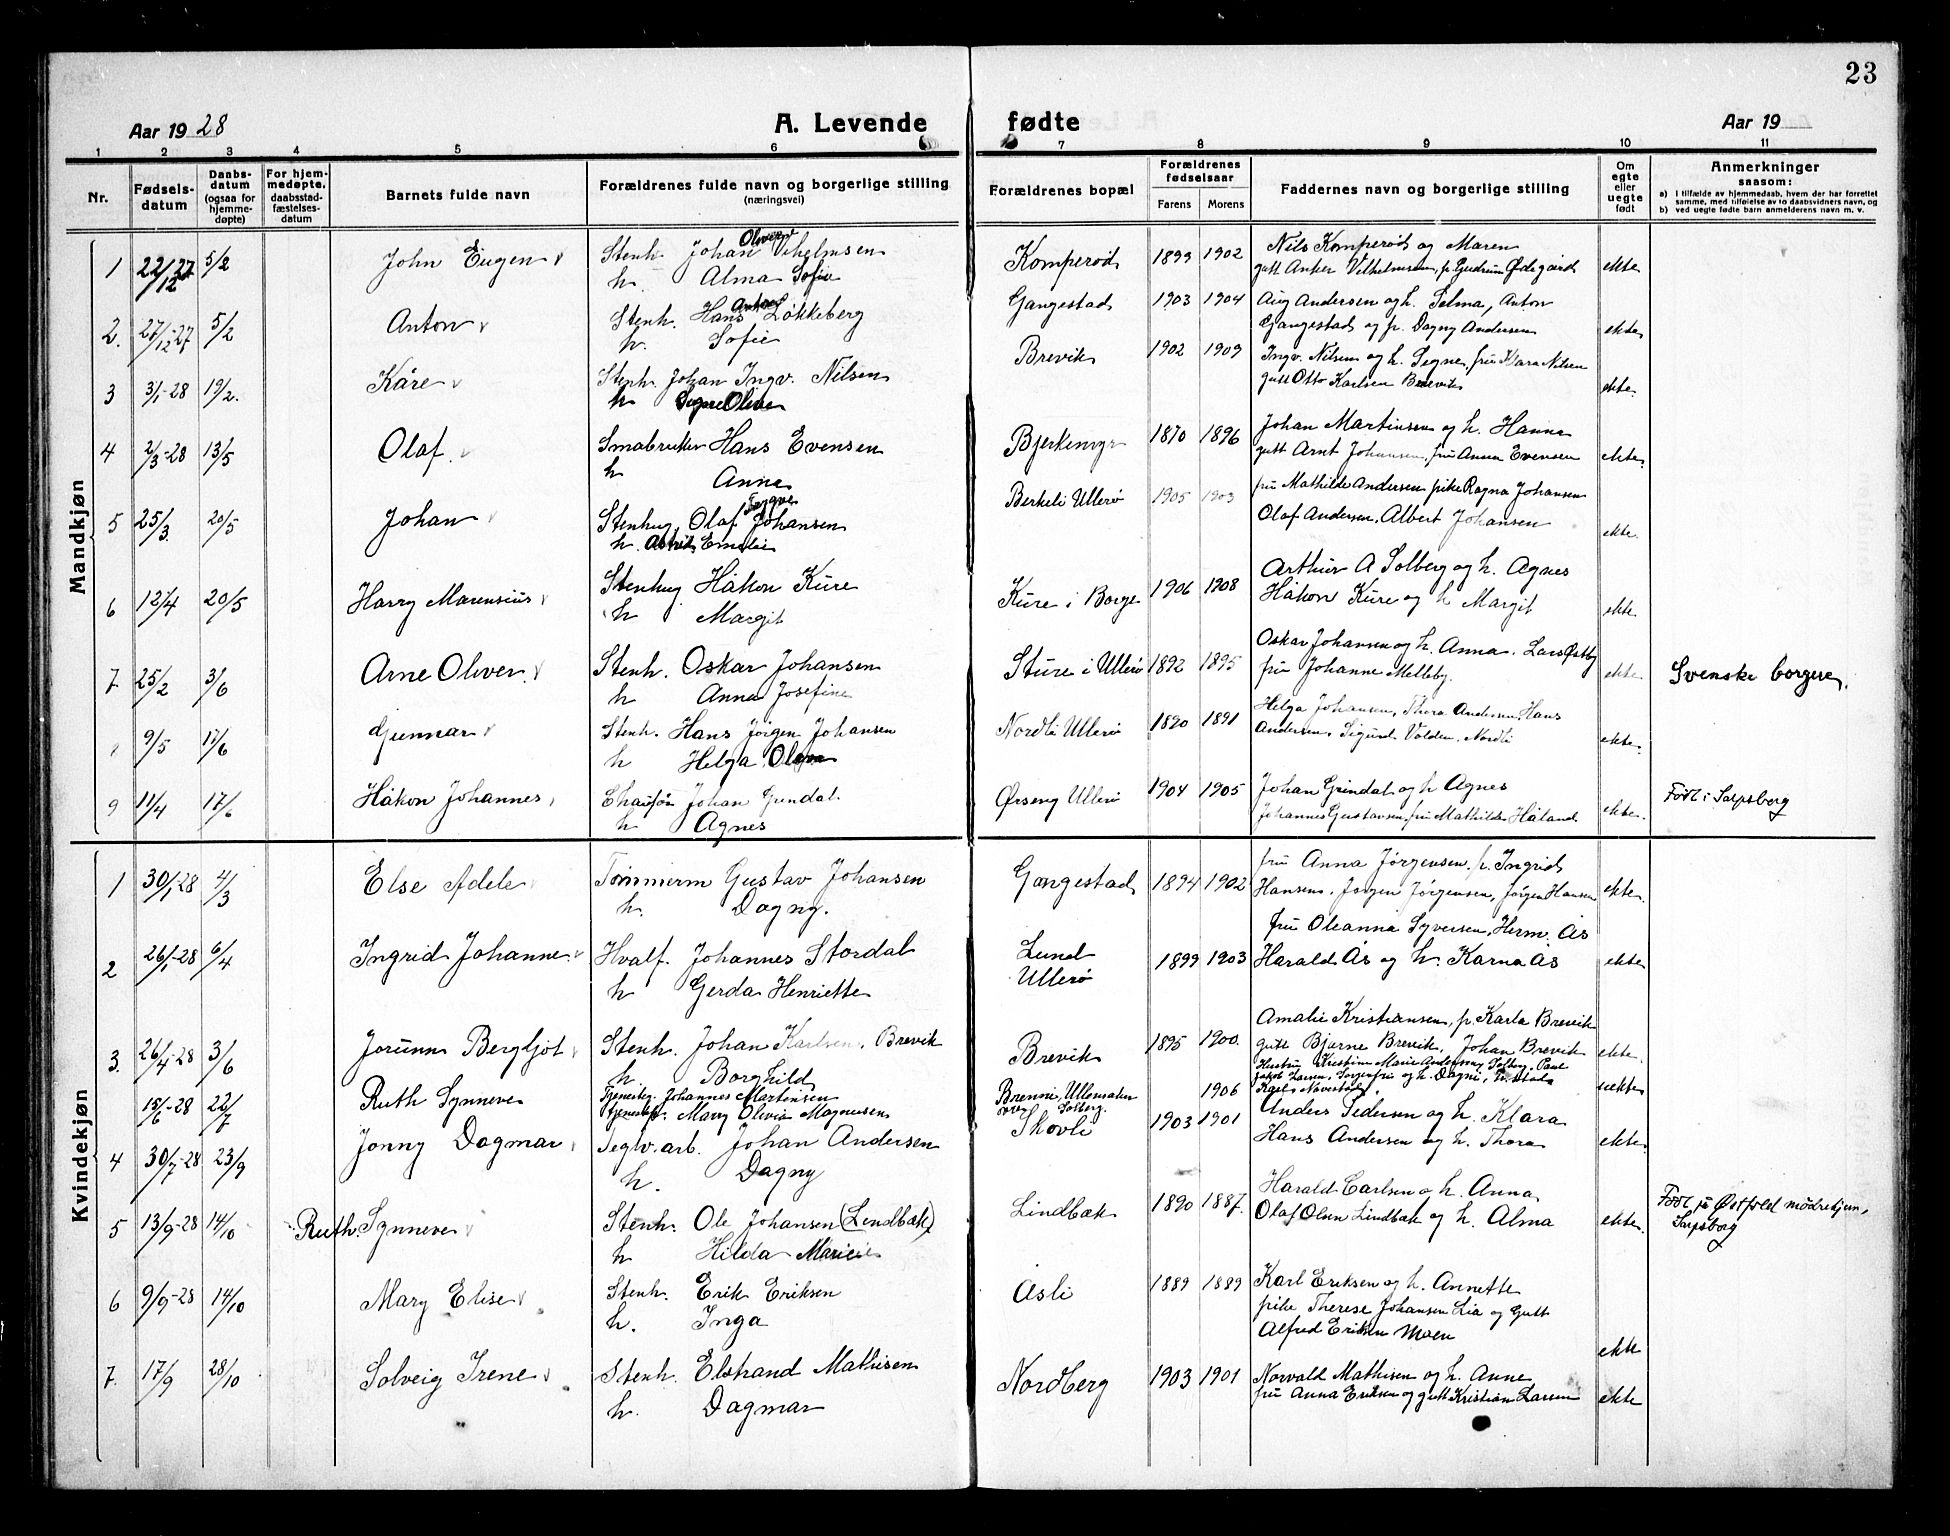 23
Aar 1928
A. Levende fødte
Aar 19
1 2 3 4 5 6 7 8 9 10 11
Nr.
Fødsels-
datum
Daabs-
datum
(ogsaa for
hjemme-
døpte)
For hjem-
medøpte,
daabsstad-
fæstelses-
datum
Barnets fulde navn
Forældrenes fulde navn og borgerlige stilling
(næringsvei)
Forældrenes bopæl
Forældrenes
fødselsaar
Farens Morens
Faddernes navn og borgerlige stilling
Om
egte
eller
uegte
født
Anmerkninger
saasom:
a) i tilfælde av hjemmedaab, hvem der har forrettet
samme, med tilføielse av to daabsvidners navn, og
b) ved uegte fødte barn anmelderens navn m. v.
Mandkjøn
1 22/12 27 5/2 John Eugen Stenh. Johan Oliver Vihelmsen Komperød 1899 1902 Nils Komperød og Maren ekte
h. Alma Sofie gutt Anker Vilhelmsen, p. Gudrun Ødegård
2. 27/12-27 5/2 Anton Stenh. Hans Anton Løkkeberg Gangestad 1903 1904 Aug Andersen og h. Selma, Anton ekte
h. Sofie Gangestad og p. Dagny Andersen
3 3/1-28 19/2. Kåre Stenh. Johan Ingv. Nilsen Brevik 1902 1909 Ingv. Nilsen og h. Signe, fru Klara Nilsen ekte.
h Signe Oline gutt Otto Karlsen Brevik
4 2/3-28 13/5 Olaf. Småbruker Hans Evensen Bjerkemyr 1870 1896 Johan Martinsen og h. Hanna ekte.
h Anna gutt Arnt Johansen, fru Anna Evensen
5 25/3. 20/5 Johan Stenhug. Olaf Trygve Johansen Berkeli Ullerø 1905 1903 fru Mathilde Andersen pike Ragna Johansen ekte.
h. Astrid Emelie Olaf Andersen, Albert Johansen
6 12/4 20/5 Harry Marensius Stenhug Håkon Kure Kure i Borge 1906 1908 Arthur A Solberg og h. Agnes ekte
h Margit Håkon Kure og h Margit
7. 25/2 3/6 Arne Oliver Stenh. Oskar Johansen Sture i Ullerø 1892 1895 Oskar Johansen og h. Anna. Lars Østby ekte Svenske borgere.
h Anna Josefine fru Johanne Melleby.
9/5 17/6 Gunnar Stenh. Hans Jörgen Johansen Nordli Ullerø 1890 1891 Helga Johansen, Thora Andersen, Hans ekte.
h Helga Andersen, Sigurd Volden, Nordli
9 11/4 17/6 Håkon Johannes, Chauför Johan Grindal. Ørseng Ullerø 1904 1905 Johan Grindal og h Agnes ekte. Født i Sarpsborg
h Agnes Johannes Gustavsen, fru Mathilde Håland
Kvindekjøn
1 30/1-28 4/3 Else Adele Tömmerm Gustav Johansen Gangestad 1894 1902 fru Anna Jørgensen. p. Ingrid ekte.
h. Dagny. Hansen. Jörgen Jørgensen, Jørgen Hansen
2 26/1-28 6/4 Ingrid Johanne. Hvalf. Johannes Stordal Lund 1899 1903 fru Oleanna Syversen, Herm. Ås ekte
h Gerda Henriette Ullerø Harald Ås og h. Karna Ås
3. 26/4-28 3/6 Jorunn Bergljot Stenh. Johan Karlsen. Brevik Brevik 1895 1900. Amalie Kristiansen, p. Karla Brevik ekte.
h. Borghild gutt Bjarne Brevik, Johan Brevik
15/6-28 22/7 Ruth Synnøve Tjenestg. Johannes Martensen Brenne, Ullensaker 1906 Hustru Kristine Marie Andersen, Solberg, Paul uekte
Tjenestep. Mary Olivia Magnussen øvre Solberg. Jakob Larsen, Sorgenfri og h. Dagni, Karl Navestad
4 30/7-28 23/9 Jonny Dagmar Teglv. arb. Johan Andersen Skovli 1903 1901 Anders Pedersen og h. Klara ekte.
h. Dagny Hans Andersen og h. Thora
5 13/9-28 14/10 Ruth. Synnøve Stenh. Ole Johansen (Lindbæk) Lindbæk 1890 1887. Harald Carlsen og h. Anna. ekte. Født på Østfold mødrehjem,
h Hilda Marie Olaf Olsen Lindbæk og h. Alma Sarpsborg
6 9/9-28 14/10 Mary Elise Stenh. Erik Eriksen Åsli 1889 1889 Karl Eriksen og h. Annette
h. Inga pike Therese Johansen Lia og Gutt
Alfred Eriksen Moen ekte
7. 17/9 28/10 Solveig Irene Stenh. Elstrand Mathisen Nordberg 1903 1901 Norvald Mathisen og h. Anne ekte
h. Dagmar fru Anna Eriksen og gutt Kristian Larsen